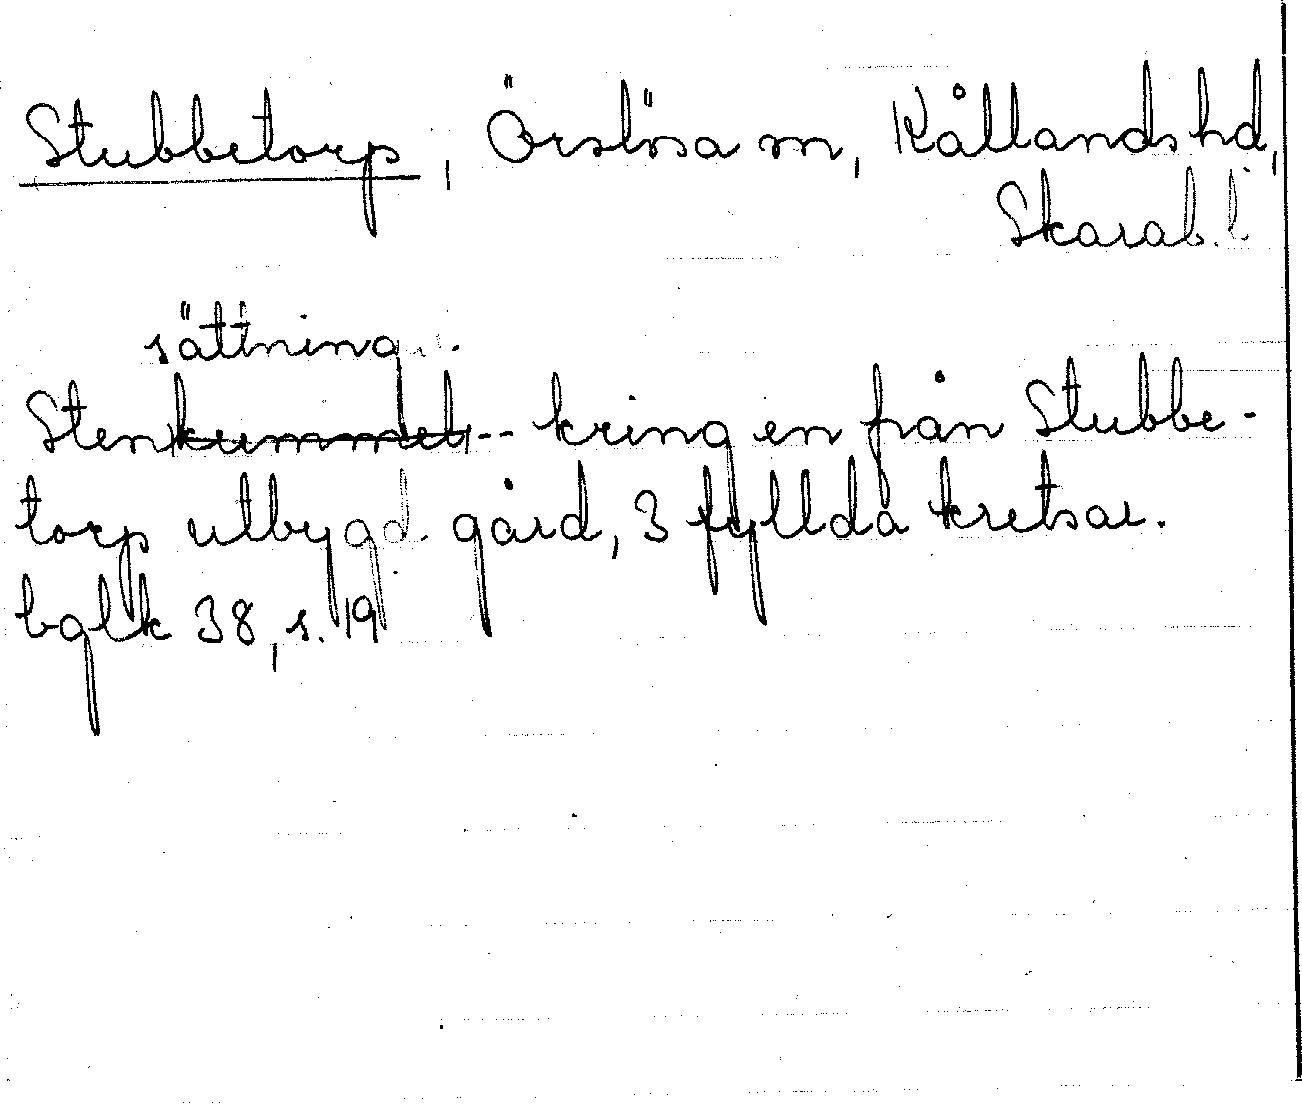 Stubbetorp, Örslösa sn, Kållands hd,
Skarab. l
sättning
Stenkummel -- kring en från Stubbe-
torp utbygd gård, 3 fyllda kretsar.
bglk 38, s. 19